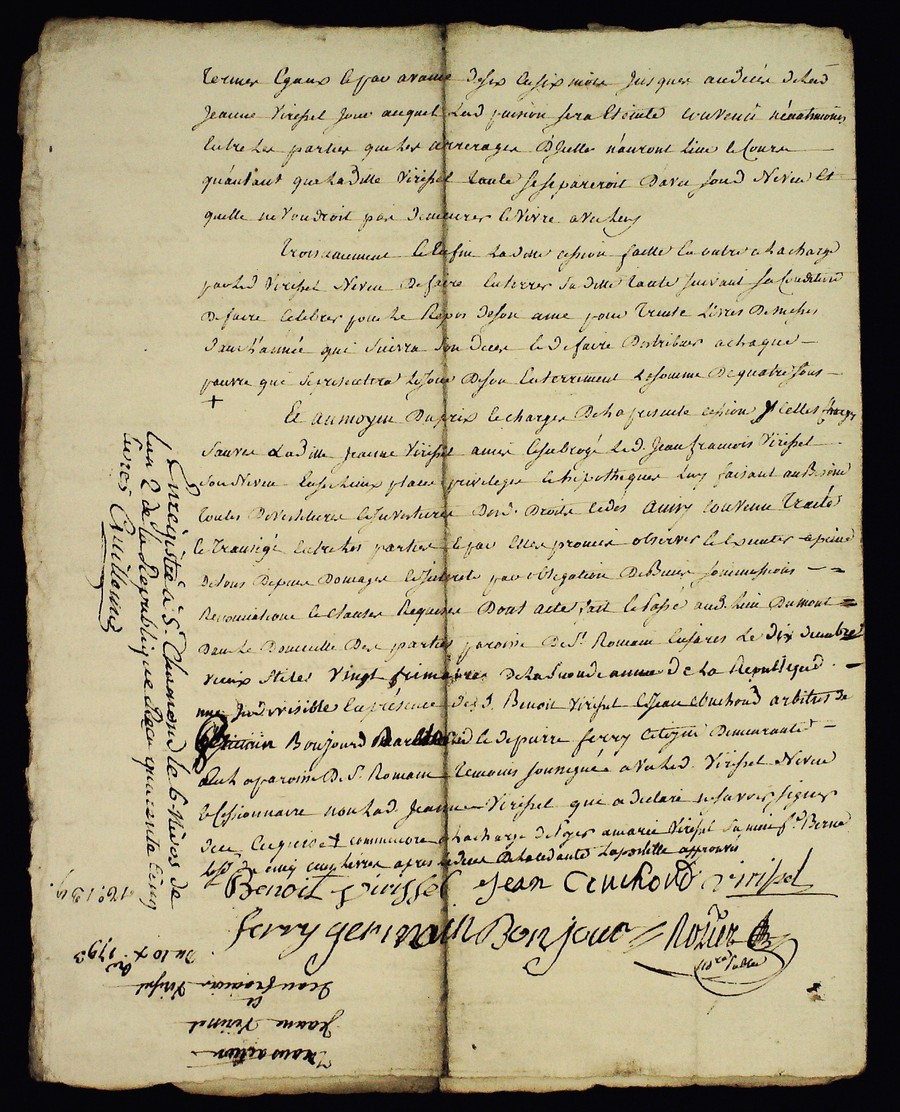 termes Egaux et par avance de six en six mois jusques au décès de lad
Jeanne Virissel jour auquel lad pension sera Eteinte convenû néantmoins
Entre les parties que les arrerages D'jcelle n'auront lieu et Cours
qu'autant que laditte Virissel tante se separeroit D'avec sond Neveu Et
quelle ne voudroit pas demeurer et vivre avec luy
Troisiemement et Enfin ladite cession faitte En outre a la charge
par led Virissel Neveu De faire Enterrer sa ditte tante suivant sa Condition
De faire Celebrer pour le Repos de son ame pour Trente Livres De messes
Dans l'année qui suivra son deces et de faire Distribuer a chaque
pauvre qui se presentera le jour De son Enterrement la somme De quatre sous
+
Et au moyen Du prix et charges De la presente cession jcelles
Sauves Ladite Jeanne Virissel a mis et subrogé led. Jean francois Virissel
Son Neveu En ses lieux places privileges et hipotheques luy faisant au Besoin
toutes Devestitures et Investitures Desd. Droits cedés Ainsy Convenu Traité
et Transigé Entre les parties et par elles promis observer et Executer a peine
De tous Depens Domages et Interets par obligation De Biens soumissions
Renonciations et Clauses Requises Dont acte fait et Passé aud. lieu Dumont
Dans le Domicille Des parties paroisse De St. Romain En jares Le dix decembre
vieux stiles Vingt frimaire De la seconde année De la Republique
une Indivisible En présence De s. Benoit Virissel et Jean Cruchond arbitres de
Germain Bonjourd et de pierre ferry Citoyens Demeurants
aud. paroisse D. St. Romain temoins soussignés avec led. Virissel Neveu
et Cessionnaire non lad Jeanne Virissel qui a declaré ne savoir signer
De ce Enquise + comme encore a la charge de payer a marie Virissel
de cinq livres apres le deces De la cedante L'apostille approuvée
Benoit Virissel Jean Cruchond Virissel
ferry germain Bonjour Rozier
Enregistré à St. Chamond le 6 Nivos de
L'an 2 de la Republique Reçu quarante cinq
Livres Guillemin
Transaction
Jeanne Virissel
et
Jean francois Virissel
Du 10 Xbre 1793